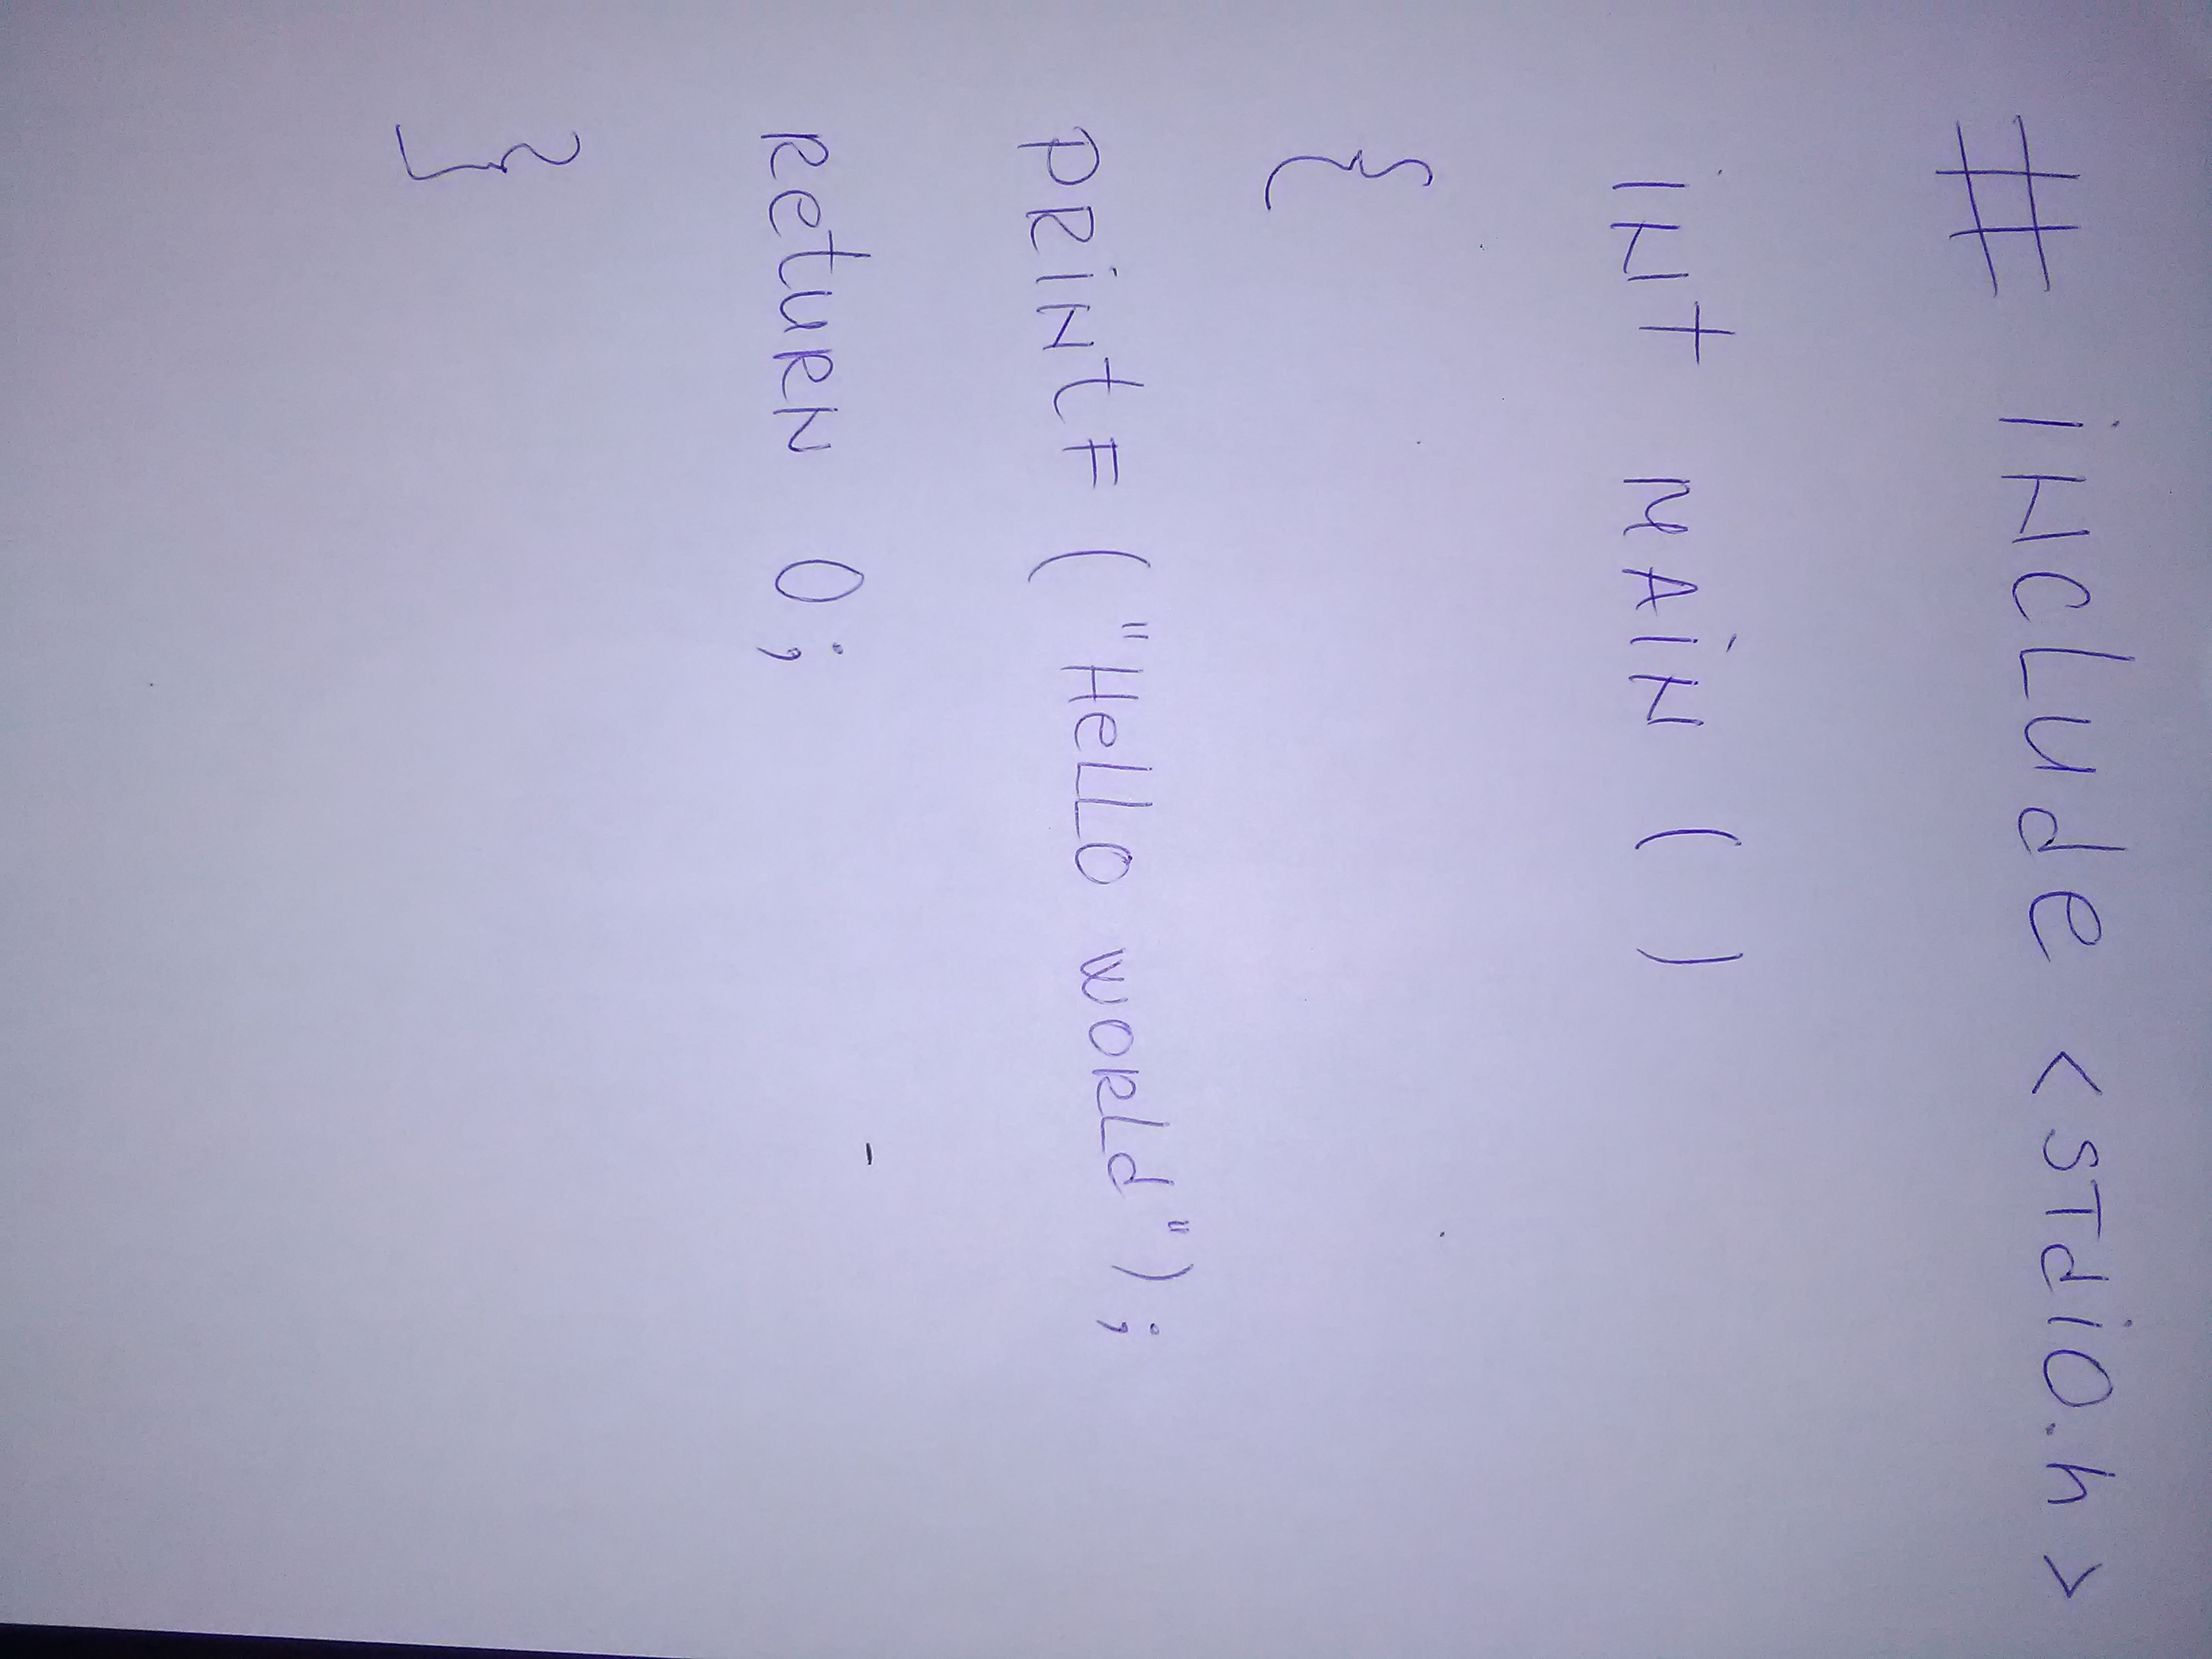 # include <stdio.h>
int main ()
{
printf ("Hello world");
return 0;
}